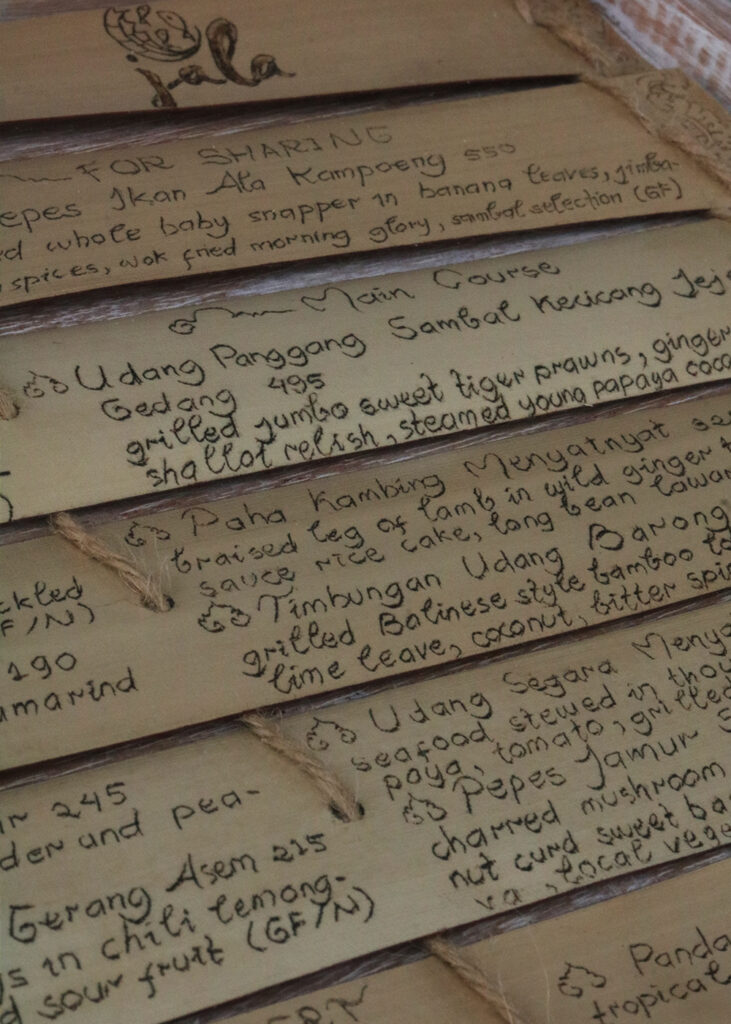 jala
FOR SHARING
epes Ikan Ala Kampoeng 550
ed whole baby snapper in banana leaves, jimba-
spices, wok fried morning glory, sambal selection (GF)
Main Course
Udang Panggang Sambal Kecicang Jej
Gedang 495
grilled jumbo sweet tiger prawns, ginger
shallot relish, steamed young papaya coco
Paha Kambing Menyatnyat
braised leg of lamb in wild ginger
sauce rice cake, long bean lawar
Timbungan Udang Barong
grilled Balinese style bamboo
lime leave, coconut, bitter spi
Udang Segara Menya
seafood stewed in thou
paya, tomato, grilled
Pepes Jamur S
charred mushroom
nut curd sweet ba
va, local vege
ckled
F/N)
190
amarind
ir 245
der and pea-
Gerang Asem 215
s in chili lemong-
d sour fruit (GF/N)
Panda
tropical